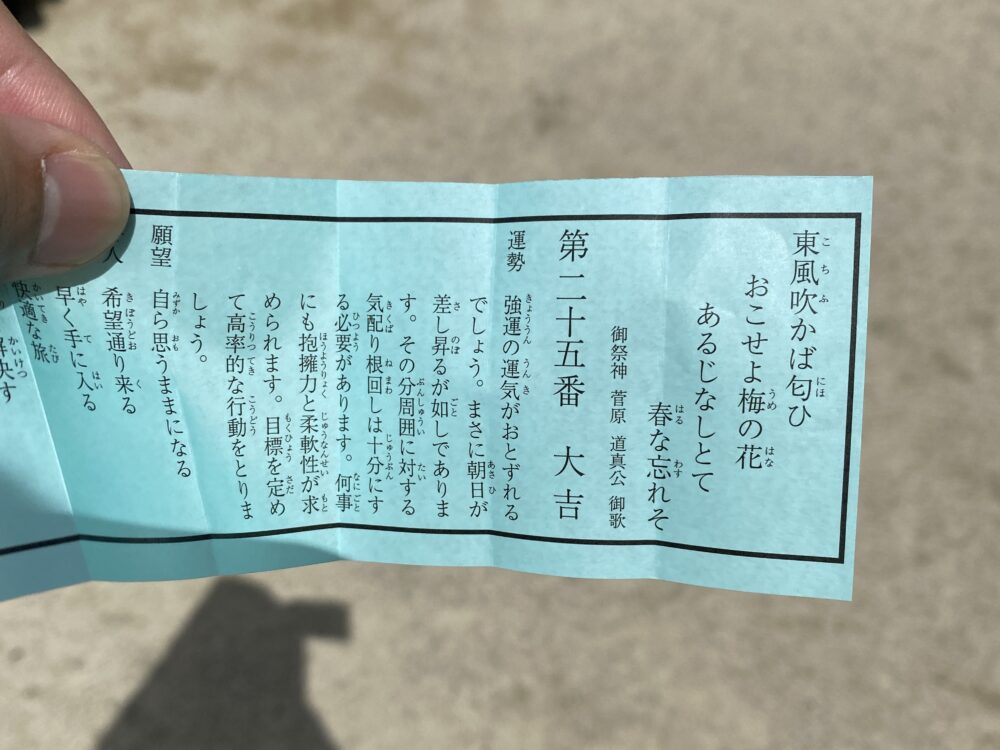 東風吹かば匂ひ
おこせよ梅の花
あるじなしとて
春な忘れそ
御祭神 菅原 道真公 御歌
第二十五番 大吉
運勢 強運の運気がおとずれる
でしょう。まさに朝日が
差し昇るが如しでありま
す。その分周囲に対する
気配り根回しは十分にす
る必要があります。何事
にも抱擁力と柔軟性が求
められます。目標を定め
て高率的な行動をとりま
しょう。
願望 自ら思うままになる
人 希望通り来る
早く手に入る
快適な旅